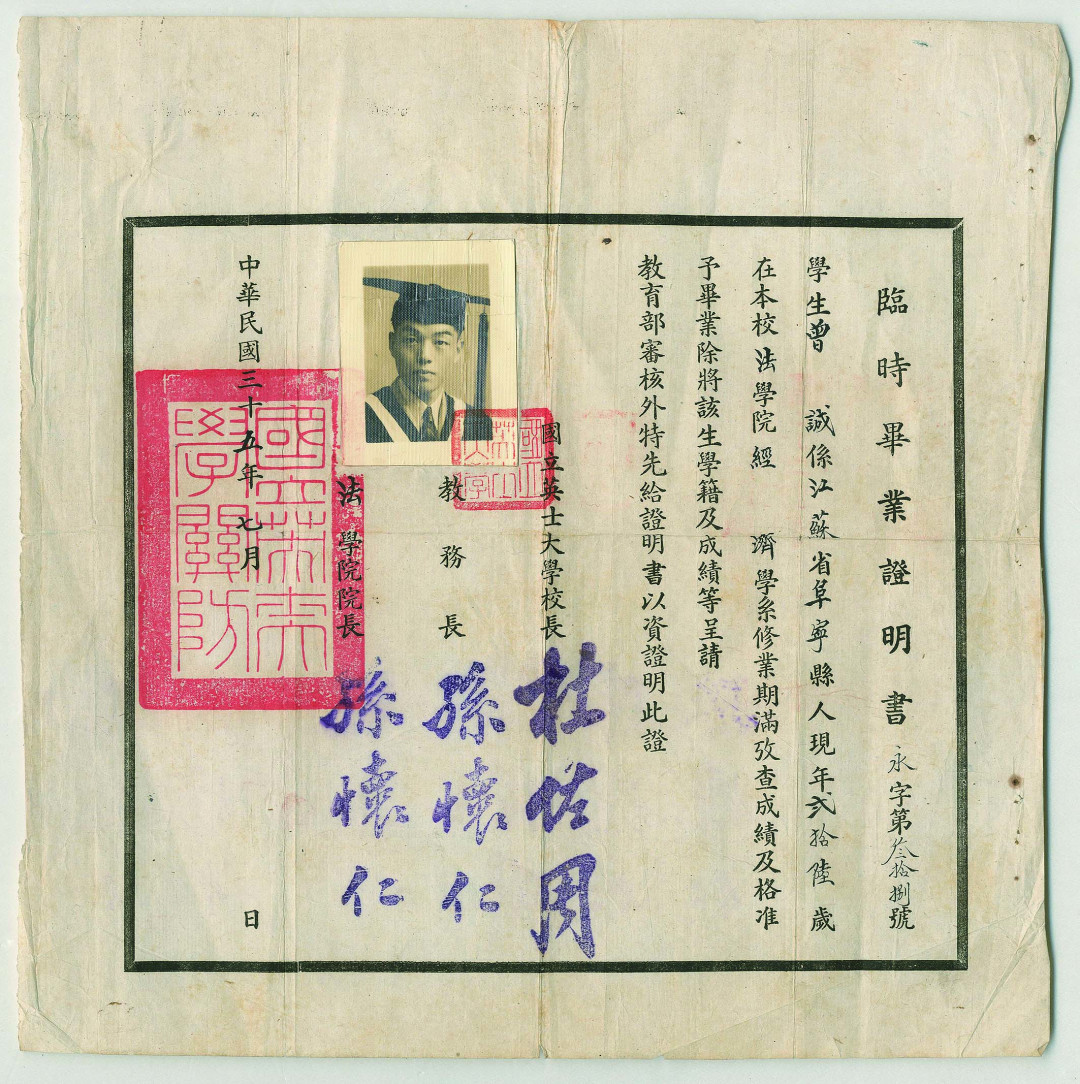 臨時畢業證明書 永字第叁拾捌號
學生曾誠係江蘇省阜寧縣人現年弍拾陸歲
在本校法學院經濟學系修業期滿攷查成績及格准
予畢業除將該生學籍及成績等呈請
教育部審核外特先給證明書以資證明此證
國立英士大學校長 杜佐周
教務長 孫懷仁
法學院院長 孫懷仁
中華民國三十五年七月 日
國立英士大學關防
國立英士大學